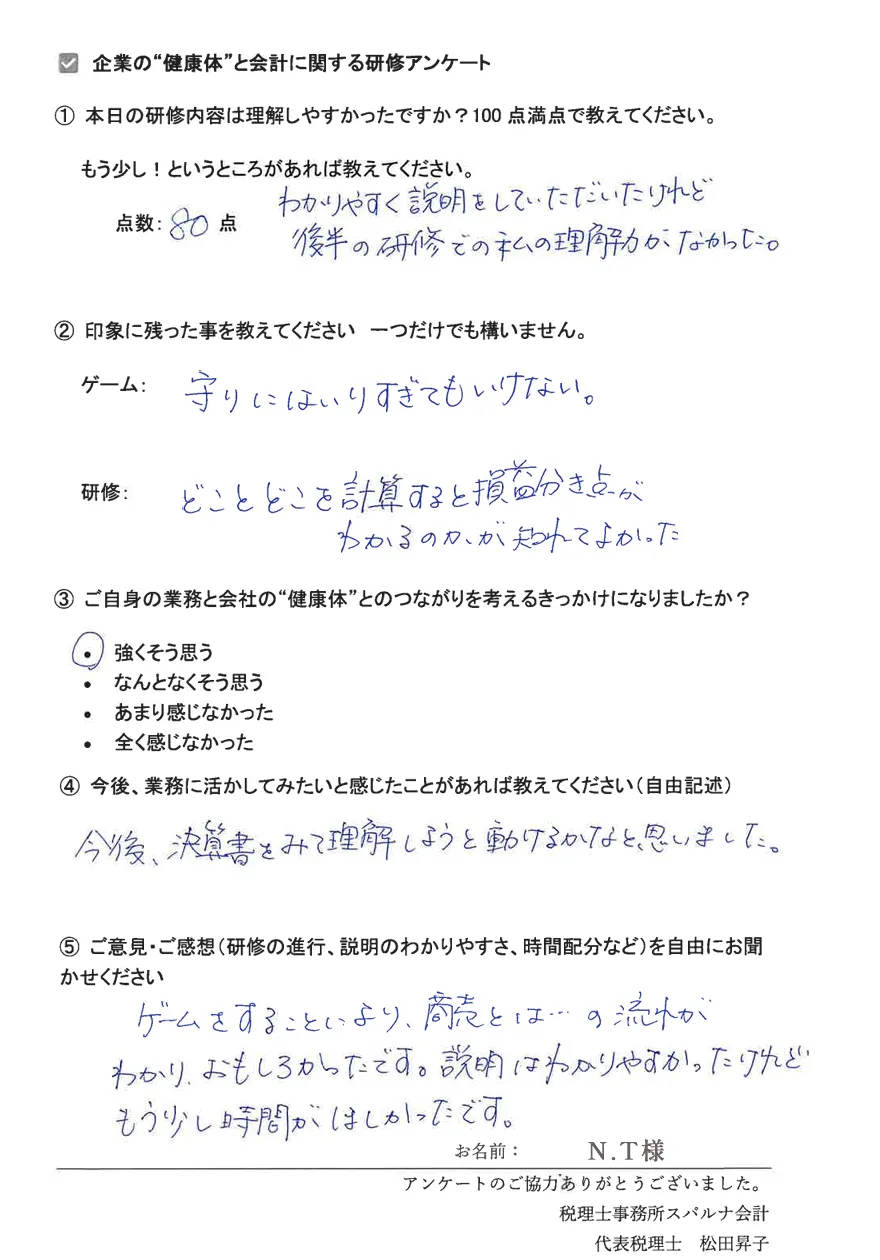 企業の“健康体”と会計に関する研修アンケート
① 本日の研修内容は理解しやすかったですか？100 点満点で教えてください。
もう少し！というところがあれば教えてください。
わかりやすく説明をしていただいたけれど
点数： 80 点
後半の研修での私の理解力がなかった。
② 印象に残った事を教えてください　一つだけでも構いません。
ゲーム： 守りにはいりすぎてもいけない。
研修： どことどこを計算すると損益分き点が
わかるのかが知れてよかった
③ ご自身の業務と会社の“健康体”とのつながりを考えるきっかけになりましたか？
• 強くそう思う
• なんとなくそう思う
• あまり感じなかった
• 全く感じなかった
④ 今後、業務に活かしてみたいと感じたことがあれば教えてください（自由記述）
今後、決算書をみて理解しようと動けるかなと思いました。
⑤ ご意見・ご感想（研修の進行、説明のわかりやすさ、時間配分など）を自由にお聞
かせください
ゲームをすることにより、商売とは…の流れが
わかり、おもしろかったです。説明はわかりやすかったけれど
もう少し時間がほしかったです。
お名前： N.T様
アンケートのご協力ありがとうございました。
税理士事務所スパルナ会計
代表税理士　松田昇子